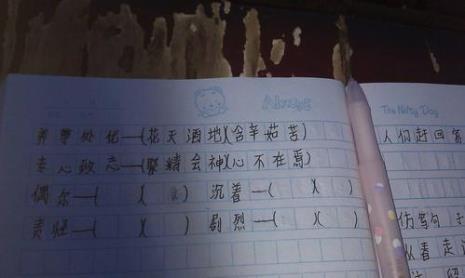 Always
The Nifty Dog
养尊处优—(花天酒地)(含辛茹苦)
专心致志—(聚精会神)(心不在焉)
偶尔—(    )(    ) 沉着—(    )(    )
责怪—(    )(    ) 剧烈—(    )(    )
人们赶回家
仿写句子
从春走